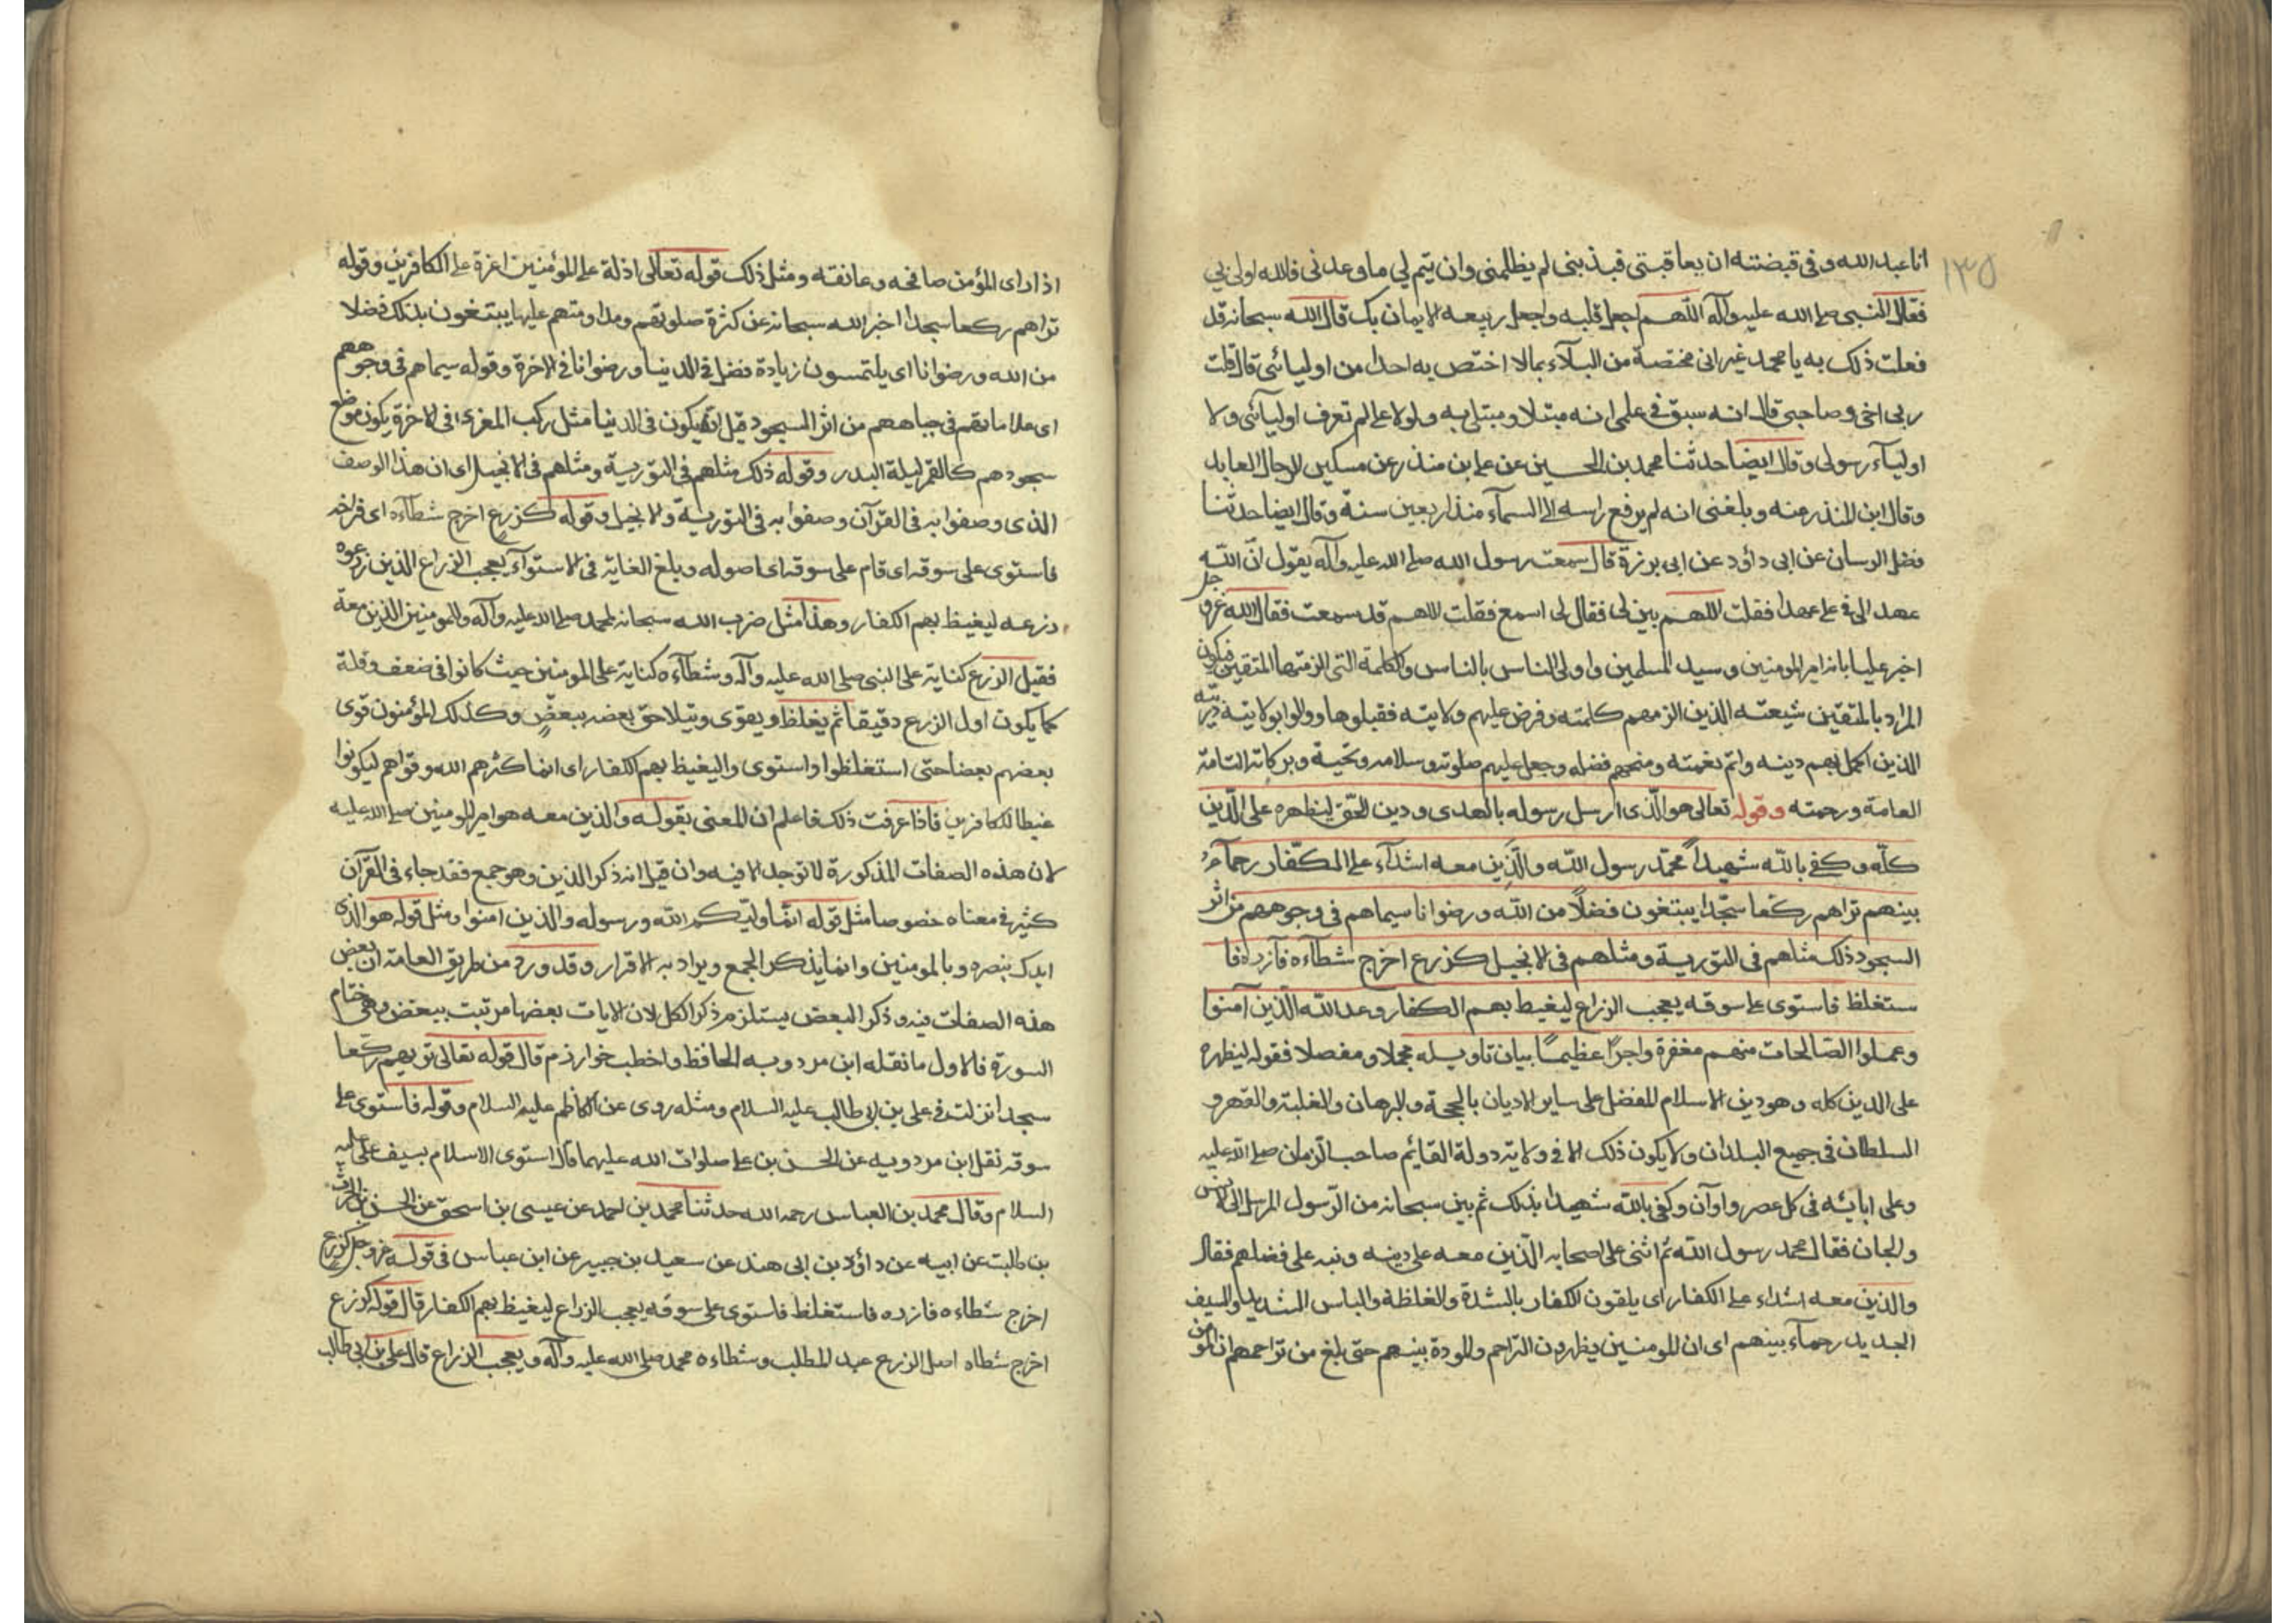 ١٣٥
انا عبد الله وفى قبضته ان يعاقبنى فبذنبى لم يظلمنى وان يتم لي ما وعدنى فالله اولى بى
فقال النبى صلى الله عليه وآله اللهم اجعل قلبه واجعل ربيعه الايمان بك قال الله سبحانه قد
فعلت ذلك به يا محمد غير انى مختصه من البلآء بمالا اختص به احدا من اوليائى قال قلت
ربى اخى وصاحبى قال انه سبق فى علمى انه مبتلا ومبتلى به ولولا على لم تعرف اوليآئى ولا
اوليآء رسولى وقال ايضا حدثنا محمد بن الحسين عن على بن منذر عن مسكين الرجال العابد
وقال ابن المنذر عنه وبلغنى انه لم يرفع راسه الى السمآء منذ اربعين سنة وقال ايضا حدثنا
فضل الرسان عن ابى داؤد عن ابى برزة قال سمعت رسول الله صلى الله عليه وآله يقول ان الله
عهد الى فى على عهدا فقلت اللهم بين لى فقال لى اسمع فقلت اللهم قد سمعت فقال الله عز و جل
اخبر عليا بانه امير المومنين وسيد المسلمين واولى الناس بالناس والكلمة التى الزمتها المتقين فيكون
المراد بالمتقين شيعته الذين الزمهم كلمته وفرض عليهم ولايته فقبلوها ووالوا بولايته ذريته
الذين اكمل بهم دينه واتم نعمته ومنحهم فضله وجعل عليهم صلوته وسلامه وتحيته وبركاته التامة
العامة ورحمته وقوله تعالى هو الذى ارسل رسوله بالهدى ودين الحق ليظهره على الدين
كله وكفى بالله شهيداً محمد رسول الله والذين معه اشدآء على الكفار رحمآء
بينهم تراهم ركعا سجدا يبتغون فضلاً من الله ورضوانا سيماهم فى وجوههم من اثر
السجود ذلك مثلهم فى التورية ومثلهم فى الانجيل كزرع اخرج شطآءه فآزره فا
ستغلظ فاستوى على سوقه يعجب الزراع ليغيظ بهم الكفار وعد الله الذين آمنوا
وعملوا الصالحات منهم مغفرة واجراً عظيماً بيان تاويله مجملا ومفصلا فقوله ليظهره
على الدين كله وهو دين الاسلام المفضل على ساير الاديان بالحجة والبرهان والغلبة والقهر و
السلطان فى جميع البلدان ولا يكون ذلك الا فى ولاية دولة القايم صاحب الزمان صلى الله عليه
وعلى ابائه فى كل عصر واوآن وكفى بالله شهيدا بذلك ثم بين سبحانه من الرسول المرسل الى الانس
والجان فقال محمد رسول الله ثم اثنى على اصحابه الذين معه على دينه ونبه على فضلهم فقال
والذين معه اشداء على الكفار اى يلقون الكفار بالشدة والغلظة والباس الشديد والسيف
الجديد رحمآء بينهم اى ان المومنين يظهرون التراحم والمودة بينهم حتى بلغ من تراحمهم ان المؤمن
اذا راى المؤمن صافحه وعانقه ومثل ذلك قوله تعالى اذلة على المؤمنين اعزة على الكافرين وقوله
تراهم ركعا سجدا اخبر الله سبحانه عن كثرة صلوتهم ومداومتهم عليها يبتغون بذلك فضلا
من الله ورضوانا اى يلتمسون زيادة فضل فى الدنيا ورضوانا فى الاخرة وقوله سيماهم فى وجوههم
اى علاماتهم فى جباههم من اثر السجود قيل انه يكون فى الدنيا مثل ركب المعزى فى الاخرة يكون موضع
سجودهم كالقمر ليلة البدر وقوله ذلك مثلهم فى التورية ومثلهم فى الانجيل اى ان هذا الوصف
الذى وصفوا به فى القرآن وصفوا به فى التورية والانجيل وقوله كزرع اخرج شطآءه اى فراخه
فاستوى على سوقه اى قام على سوقه اى اصوله وبلغ الغاية فى الاستوآء يعجب الزراع الذين زرعوه
وزرعه ليغيظ بهم الكفار وهذا مثل ضرب الله سبحانه لمحمد صلى الله عليه وآله والمومنين الذين معه
فقيل الزرع كناية على النبى صلى الله عليه وآله وشطآءه كناية على المومنين حيث كانوا فى ضعف وقلة
كما يكون اول الزرع دقيقا ثم يغلظ ويقوى ويتلاحق بعضه ببعض وكذلك المؤمنون قوى
بعضهم بعضا حتى استغلظوا واستوى واليغيظ بهم الكفار اى انما كثرهم الله وقواهم ليكونوا
غيظا للكافرين فاذا عرفت ذلك فاعلم ان المعنى بقوله والذين معه هو امير المومنين صلى الله عليه
لان هذه الصفات المذكورة لا توجد الا فيه وان قيل انه ذكر الذين وهو جمع فقد جاء فى القرآن
كثير فى معناه خصوصا مثل قوله انما وليكم الله ورسوله والذين امنوا ومثل قوله هو الذى
ايدك بنصره وبالمومنين وانما يذكر الجمع ويراد به الاقرار وقد ورد من طريق العامة ان بعض
هذه الصفات فيه وذكر البعض يستلزم ذكر الكل لان الايات بعضها مرتبت ببعض وهى ختام
السورة فالاول ما نقله ابن مردويه الحافظ واخطب خوارزم قال قوله تعالى تريهم ركعا
سجدا نزلت فى على بن ابى طالب عليه السلام ومثله روى عن الكاظم عليه السلام وقوله فاستوى على
سوقه نقل ابن مردويه عن الحسن بن على صلوات الله عليهما قال استوى الاسلام بسيف على عليه
السلام وقال محمد بن العباس رحمه الله حدثنا محمد بن احمد عن عيسى بن اسحق عن الحسن بن الحرث
بن طالبت عن ابيه عن داؤد بن ابى هند عن سعيد بن جبير عن ابن عباس فى قوله عز وجل كزرع
اخرج شطاءه فازره فاستغلظ فاستوى على سوقه يعجب الزراع ليغيظ بهم الكفار قال قوله كزرع
اخرج شطاه اصل الزرع عبد المطلب وشطاءه محمد صلى الله عليه وآله ويعجب الزراع قال على بن ابى طالب